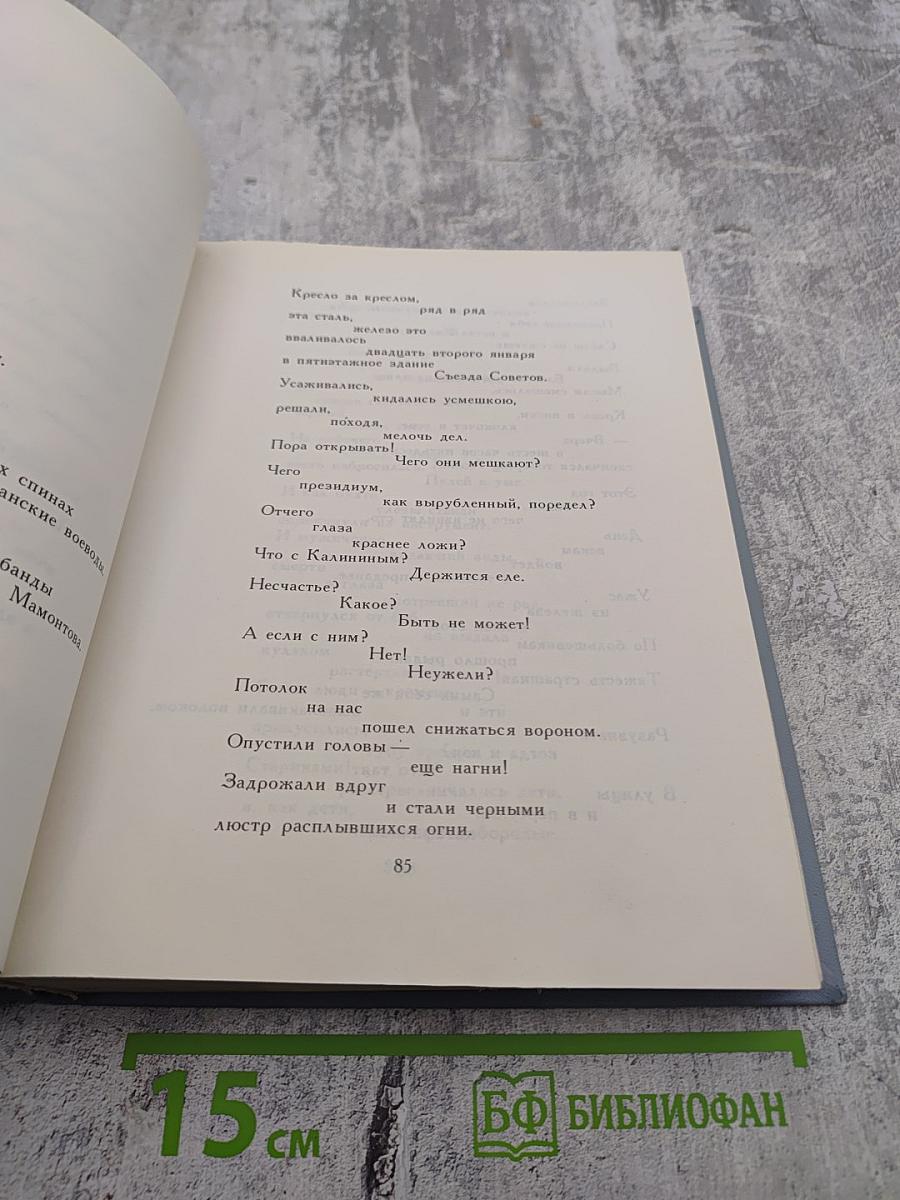 х спинах
анские воеводы.
банды
Мамонтова.
Кресло за креслом,
ряд в ряд
эта сталь,
железо это
вваливалось
двадцать второго января
в пятиэтажное здание
Съезда Советов.
Усаживались,
кидались усмешкою,
решали,
походя,
мелочь дел.
Пора открывать!
Чего они мешкают?
Чего
президиум,
как вырубленный, поредел?
Отчего
глаза
краснее ложи?
Что с Калининым?
Держится еле.
Несчастье?
Какое?
Быть не может!
А если с ним?
Нет!
Неужели?
Потолок
на нас
пошел снижаться вороном.
Опустили головы —
еще нагни!
Задрожали вдруг
и стали черными
люстр расплывшихся огни.
85
15 см
БФ БИБЛИОФАН